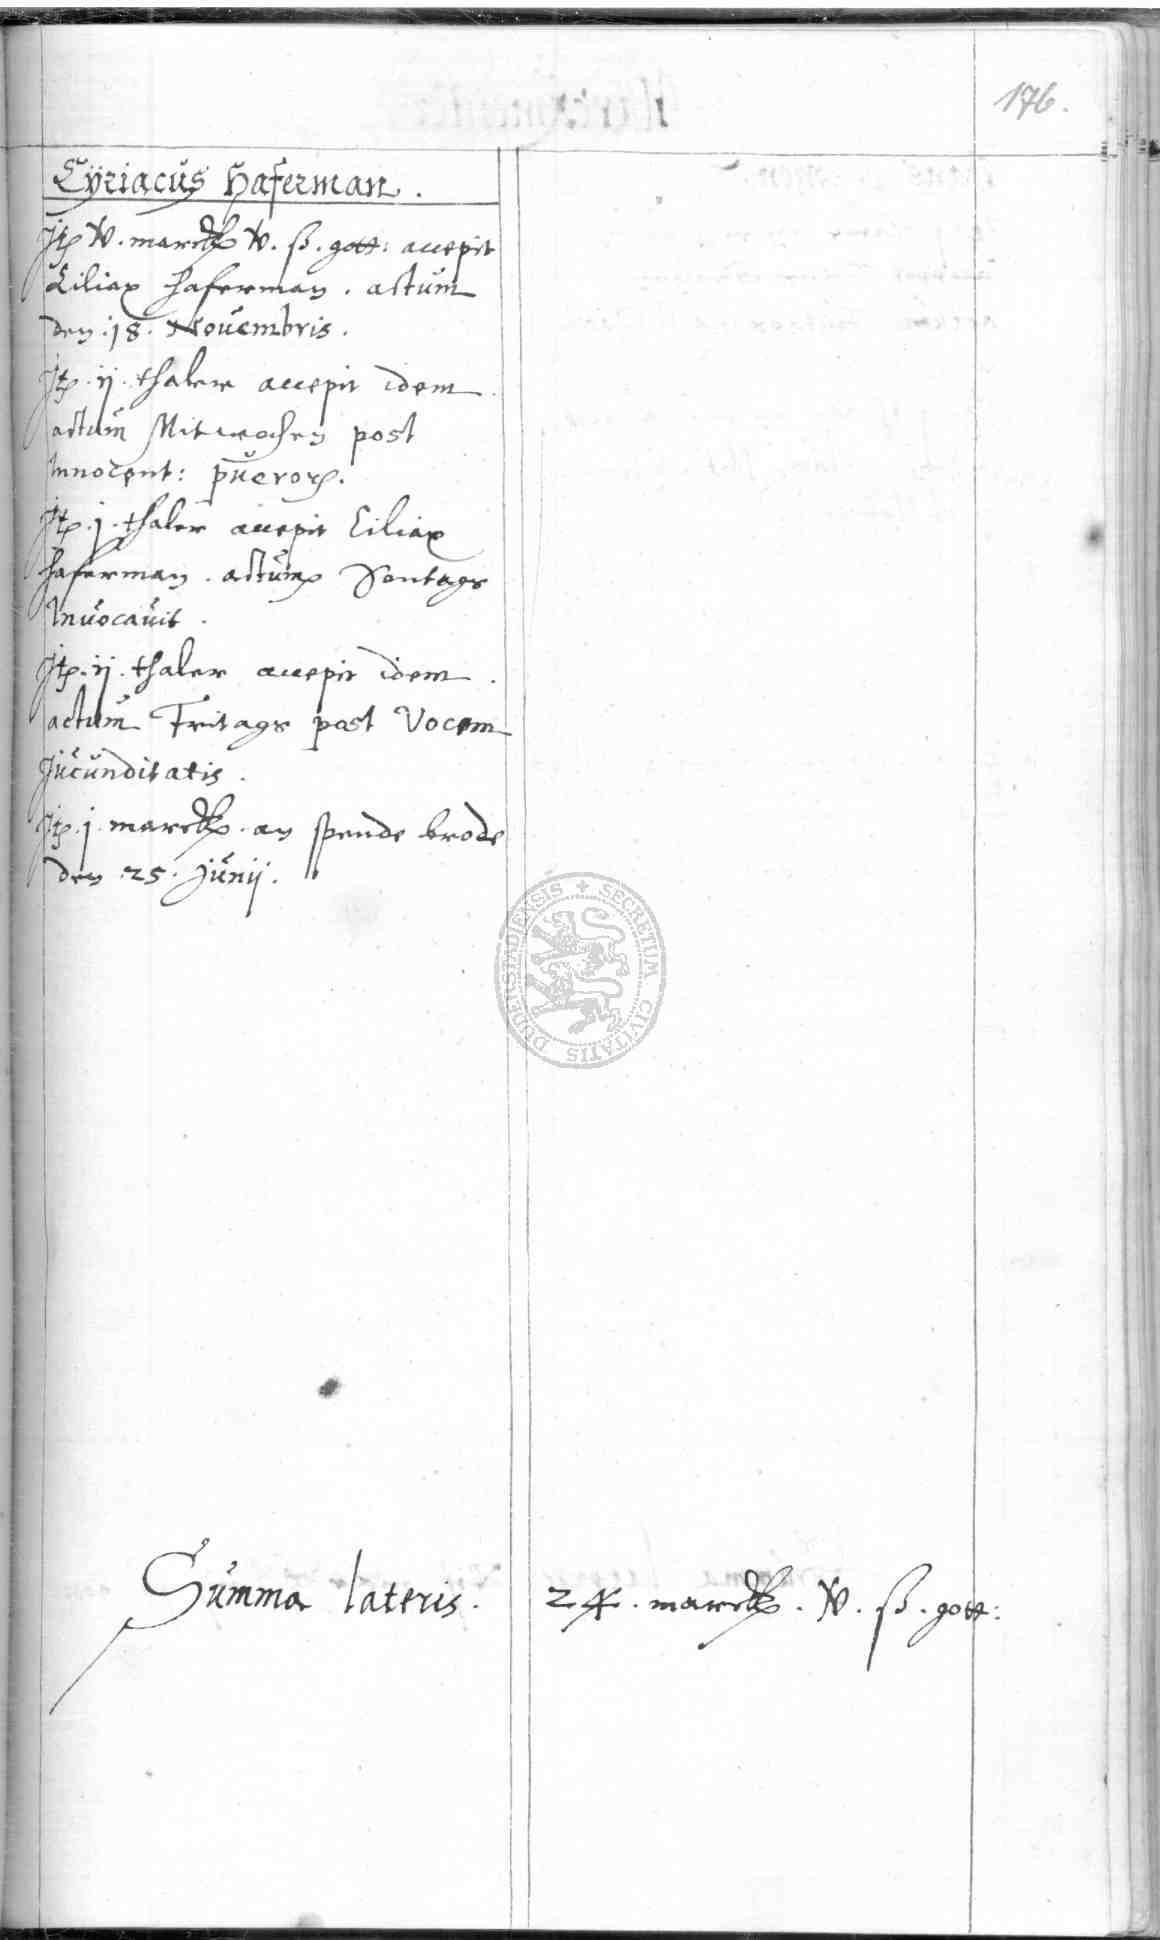 176.
Cÿriacus Haferman.
Jtꝫ v. marck v. ß. gott: accepit
Ciliax Haferman. actum
den .18. Novembris.
Jtꝫ .ij. thaler accepit idem.
actum Mitwochen post
Innocent: pueror.
Jtꝫ .j. thaler accepit Ciliax
Haferman. actum Sontags
Invocavit.
Jtꝫ .ij. thaler accepit idem.
actum Fritags post Vocem
Jucunditatis.
Jtꝫ .j. marck. an spende brode
den .25. Junij.
SECRETUM CIVITATIS DUDERSTADIENSIS
Summa lateris. 24. marck. v. ß. gott: